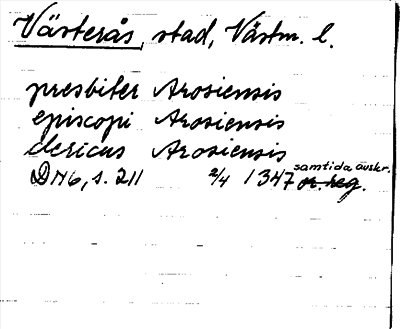 Västerås, stad, Västm. l.
presbiter Arosiensis
episcopi Arosiensis
clericus Arosiensis
samtida avskr.
DN6, s. 211 2/4 1347 or. reg.